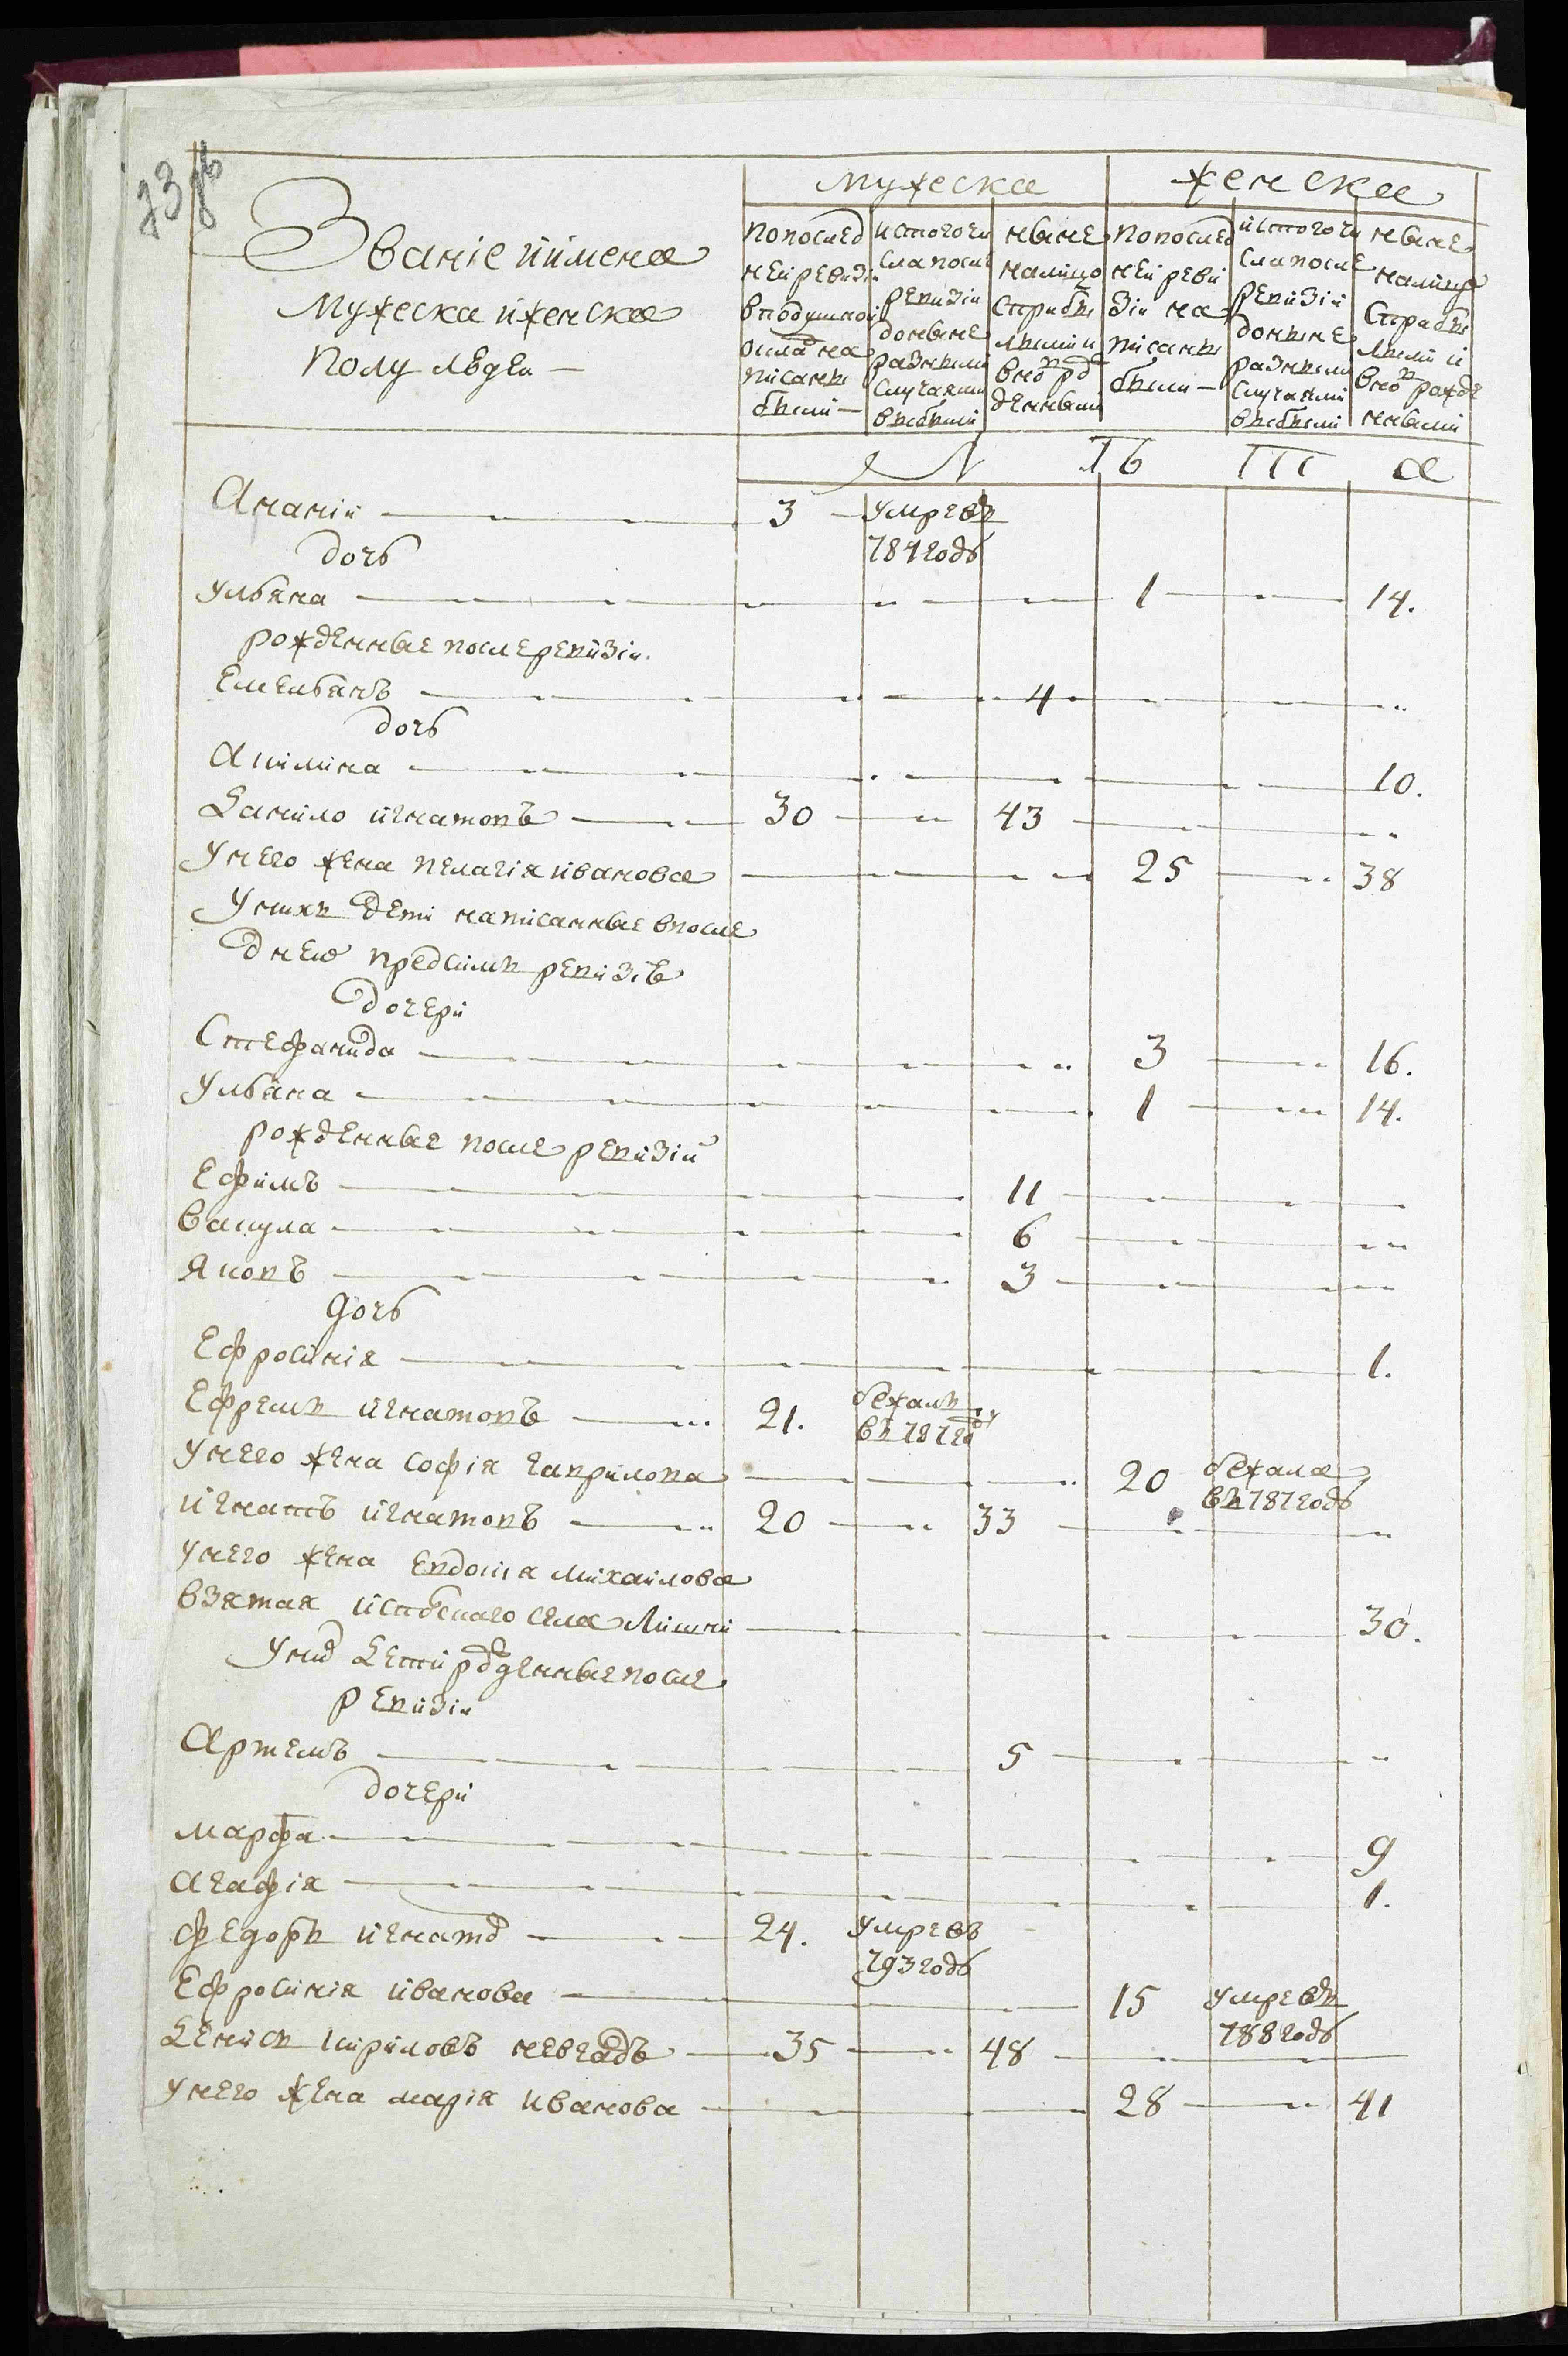 73 об
Званіе иимена
мужеска иженска
полу людеи —
мужеска
женска
попослед
ней ревизіи
вподушной
оклад на
писаны
были —
истогочи
сла после
ревизіи
доныне
разными
случаями
выбыли
ныне
налицо
сприбы
лыми и
вновь рож
денными
попослед
ней реви
зіи на
писаны
были —
истогочи
сла после
ревизіи
доныне
разными
случаями
выбыли
ныне
налицо
сприбы
лыми и
вновь рожде
нными
Л Ѣ Т а
Ананіи 3 умре въ
784 годѣ
дочь
Ульяна 1 14.
рожденные после ревизіи.
Емельянъ 4
дочь
Акилина 10.
Данило игнатовъ 30 43
У него жена пелагія иванова 25 38
У нихъ дети написанные впосле
днею предсимъ ревизіѣ
дочери
Стефанида 3 16.
Ульяна 1 14.
рожденные после ревизіи
Ефимъ 11
Вакула 6
Яковъ 3
дочь
Ефросинія 1.
Ефремъ игнатовъ 21. бежалъ
въ 787 год
У него жена софія гаврилова 20 бежала
въ 787 годѣ
игнатъ игнатовъ 20 33
У него жена Евдокія михаилова
взятая села 30.
У них дети рожденные после
ревизіи
Артемъ 5
дочери
марфа 9
агафія 1.
федоръ игнатов 24. умре въ
793 годѣ
Ефросинія иванова 15 умре въ
788 годѣ
Денисъ кириловъ 35 48
У него жена марія иванова 28 41